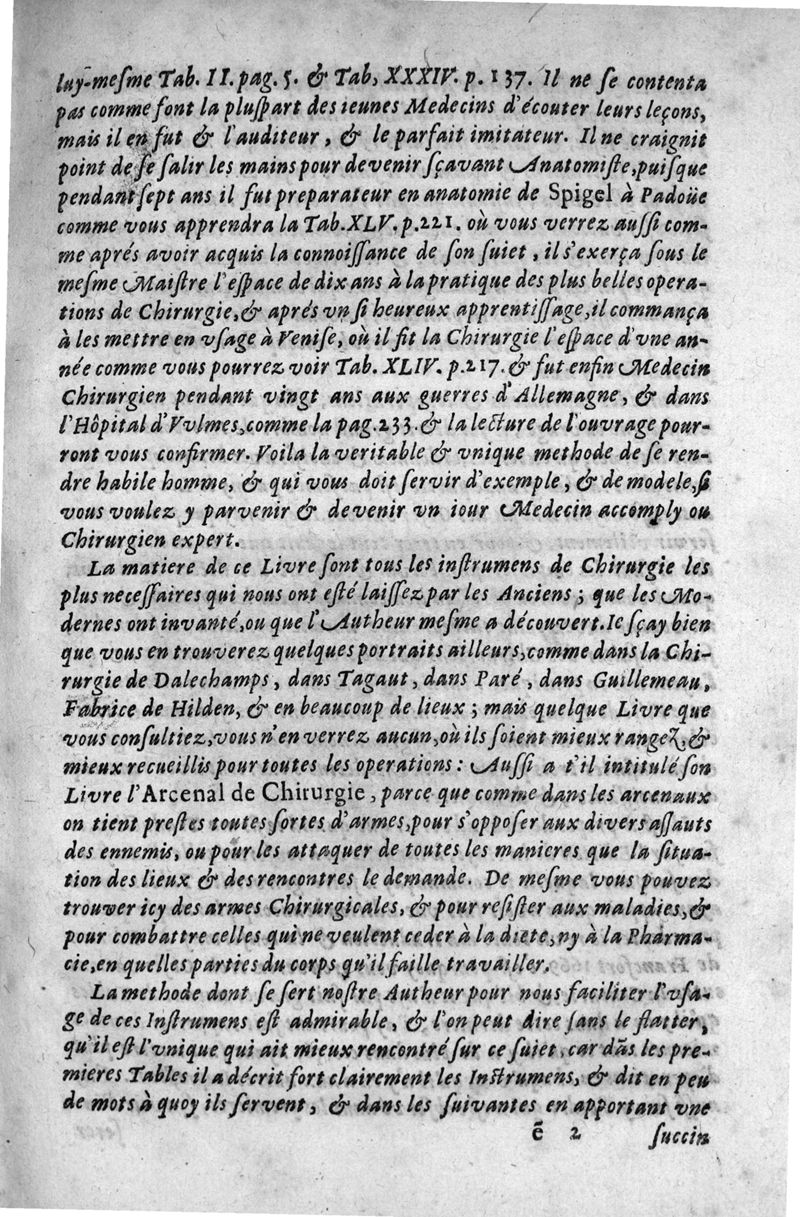 luy-meſme Tab. II. pag. 5. & Tab, XXXIV. p. 137. Il ne ſe contenta
pas comme font la pluſpart des ieunes Medecins d'écouter leurs leçons,
mais il en fut & l'auditeur, & le parfait imitateur. Il ne craignit
point de ſe ſalir les mains pour devenir ſçavant Anatomiſte, puiſque
pendant ſept ans il fut preparateur en anatomie de Spigel à Padoüe
comme vous apprendra la Tab. XLV. p. 221. où vous verrez auſſi com-
me aprés avoir acquis la connoiſſance de ſon ſuiet, il s'exerça ſous le
meſme Maiſtre l'eſpace de dix ans à la pratique des plus belles opera-
tions de Chirurgie, & aprés vn ſi heureux apprentiſſage, il commança
à les mettre en vſage à Veniſe, où il fit la Chirurgie l'eſpace d'vne an-
née comme vous pourrez voir Tab. XLIV. p. 217. & fut enfin Medecin
Chirurgien pendant vingt ans aux guerres d'Allemagne, & dans
l'Hôpital d'Vvlmes, comme la pag. 233. & la lecture de l'ouvrage pour-
ront vous confirmer. Voila la veritable & vnique methode de ſe ren-
dre habile homme, & qui vous doit ſervir d'exemple, & de modele, ſi
vous voulez y parvenir & devenir vn iour Medecin accomply ou
Chirurgien expert.
La matiere de ce Livre ſont tous les inſtrumens de Chirurgie les
plus neceſſaires qui nous ont eſté laiſſez par les Anciens; que les Mo-
dernes ont invanté, ou que l'Autheur meſme a découvert. Ie ſçay bien
que vous en trouverez quelques portraits ailleurs, comme dans la Chi-
rurgie de Dalechamps, dans Tagaut, dans Paré, dans Guillemeau,
Fabrice de Hilden, & en beaucoup de lieux; mais quelque Livre que
vous conſultiez, vous n'en verrez aucun, où ils ſoient mieux rangez, &
mieux recueillis pour toutes les operations: Auſſi a t'il intitulé ſon
Livre l'Arcenal de Chirurgie, parce que comme dans les arcenaux
on tient preſtes toutes ſortes d'armes, pour s'oppoſer aux divers aſſauts
des ennemis, ou pour les attaquer de toutes les manieres que la ſitua-
tion des lieux & des rencontres le demande. De meſme vous pouvez
trouver icy des armes Chirurgicales, & pour reſiſter aux maladies, &
pour combattre celles qui ne veulent ceder à la diete, ny à la Pharma-
cie, en quelles parties du corps qu'il faille travailler.
La methode dont ſe ſert noſtre Autheur pour nous faciliter l'vſa-
ge de ces Inſtrumens eſt admirable, & l'on peut dire ſans le flatter,
qu'il eſt l'vnique qui ait mieux rencontré ſur ce ſuiet, car dãs les pre-
mieres Tables il a décrit fort clairement les Inſtrumens, & dit en peu
de mots à quoy ils ſervent, & dans les ſuivantes en apportant vne
ẽ 2 ſuccin